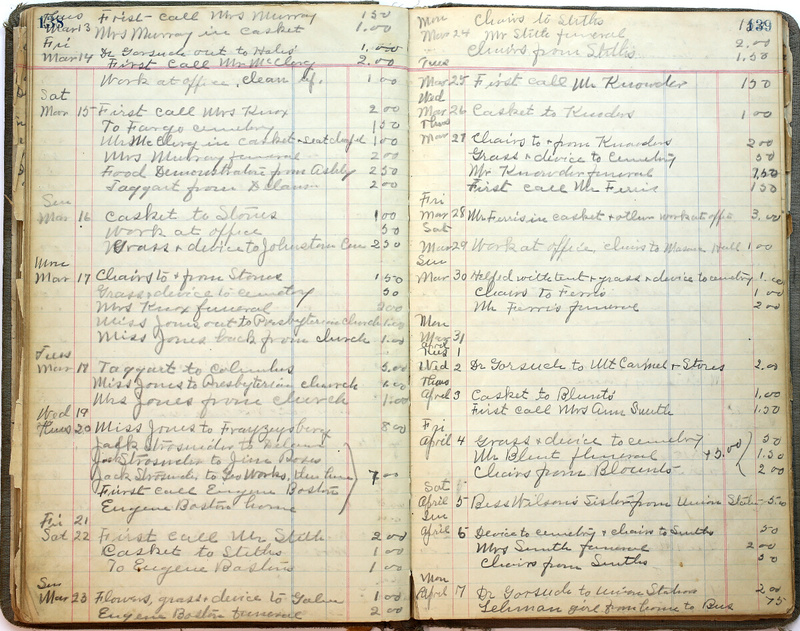 138
Thurs First call Mrs Murray 1 50
Mar 13 Mrs Murray in casket 1.00
Fri
Mar 14 Dr Gorsuch out to 1.00
First Call Mr McClery 2.00
Work at office, clean up. 1 00
Sat
Mar 15 First call Mrs Knox 2 00
To Fargo cemetery 1 50
Mr McClery in casket + 1 00
Mrs Murray funeral 2 00
Food Demonstrator from Ashley 2 50
Taggart from Delaware 2 00
Sun
Mar 16 Casket to Stones 1 00
Work at office 50
Grass + device to Johnstown Cem 2 50
Mon
Mar 17 Chairs to + from Stones 1 50
Grass + device to cemetery 50
Mrs Knox funeral 2 00
Miss Jones out to Presbyterian church 1.00
Miss Jones back from church 1.00
Tues
Mar 18 Taggart to Columbus 5.00
Miss Jones to Presbyterian church 1.00
Mrs Jones from church 1.00
Wed 19
Thurs 20 Miss Jones to Frazeysburg 8 00
Jack Strosnider to
Strosnider to Jim
Jack Strosnider to Geo Works, then home 7.00
First call Eugene Boston
Eugene Boston home
Fri 21
Sat 22 First call Mr Stith 2 00
Casket to Stiths 1 00
To Eugene Bostons 1 00
Sun
Mar 23 Flowers, grass + device to Galena 1 00
Eugene Boston funeral 2 00
139
Mon Chairs to Stiths 1
Mar 24 Mr Stith funeral 2.00
Chairs from Stiths 1.50
Tues
Mar 25 First call Mr Knowder 1 50
Wed
Mar 26 Casket to Knoders 1 00
Thurs
Mar 27 Chairs to + from Knowders 2 00
Grass + device to cemetery 50
Mr Knowder funeral 1.50
First call Mr Ferris 1 50
Fri
Mar 28 Mr Ferris in casket + other work at office 3.00
Sat
Mar 29 Work at office, chairs to Hall 1 00
Sun
Mar 30 Helped with tent + grass + device to cemetery 1.00
Chairs to Ferris 1 00
Mr Ferris funeral 2 00
Mon
Mar 31
April
Tues 1
Wed 2 Dr Gorsuch to Mt Carmel + Stores 2.00
Thurs
April 3 Casket to Blunts 1.00
First call Mrs Ann Smith 1.50
Fri
April 4 Grass + device to cemetery 50
Mr Blunt funeral +5.00 1.50
Chairs from Blounts 2 00
Sat
April 5 Bess Wilson's Sister from Union Station 5.00
Sun
April 6 Device to cemetery + chairs to Smiths 50
Mrs Smith funeral 2 00
Chairs from Smiths 50
Mon
April 7 Dr Gorsuch to Union Station 2 00
Lehman girl from home to Bus 75